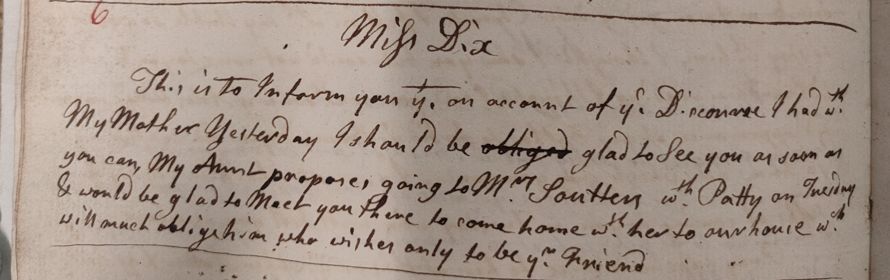 6
Miss Dix
This is to Inform you yt. on account of ye Discourse I had wth.
My Mother Yesterday I should be obliged glad to See you as soon as
you can, My Aunt proposes going to Mrs. Soutters wth. Patty on Tuesday
& would be glad to Meet you there to come home wth. her to our house wch.
will much oblige him who wishes only to be yr. Friend